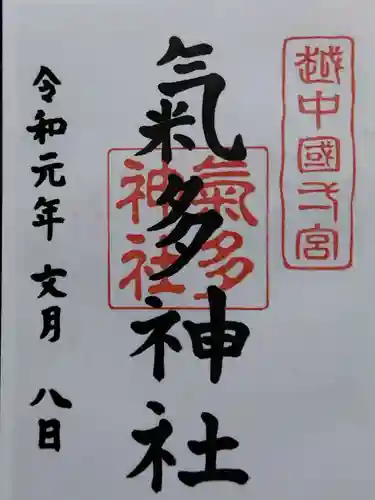 越中國一宮
氣多神社
氣多神社
令和元年 文月 八日